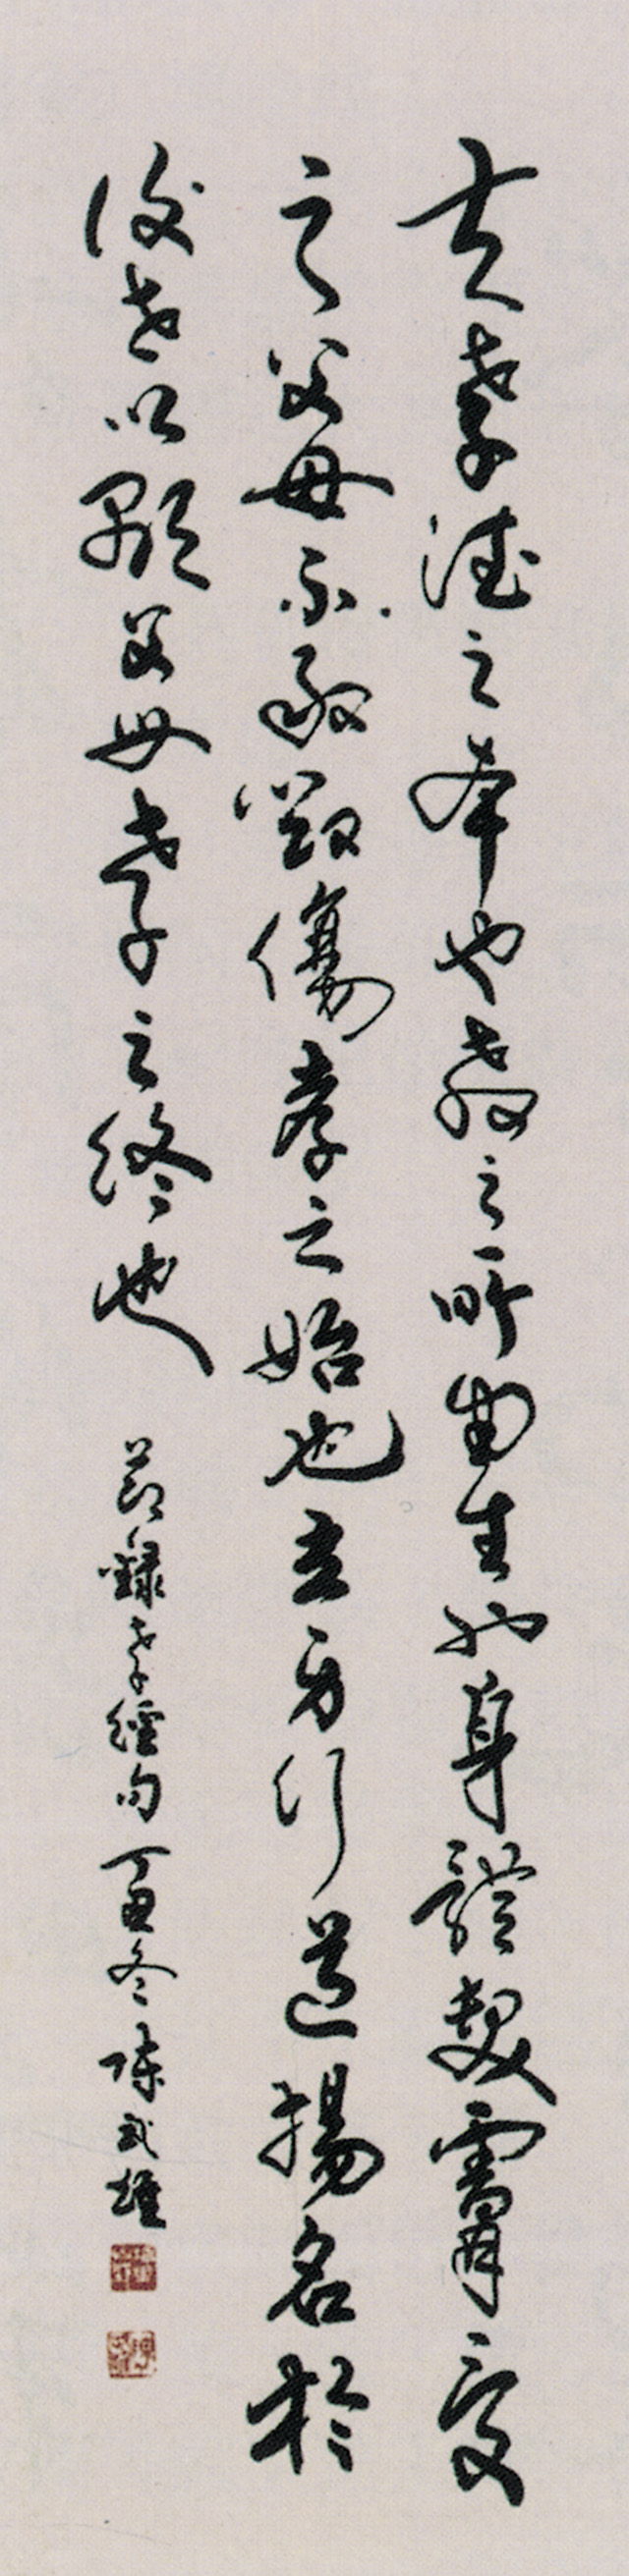 夫孝德之本也教之所由生也身體髮膚受
之父母不敢毀傷孝之始也立身行道揚名於
後世以顯父母孝之終也 節錄孝經句丁丑冬陳武雄